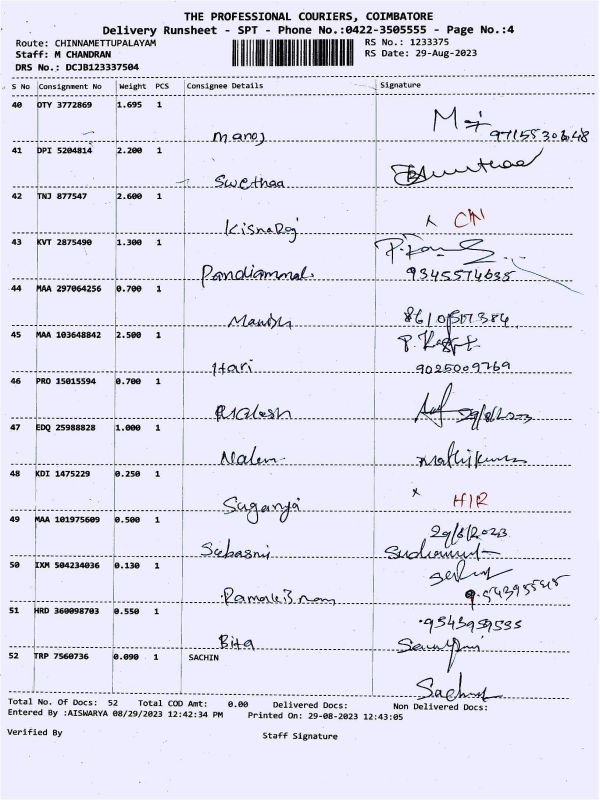 THE PROFESSIONAL COURIERS, COIMBATORE
Delivery Runsheet - SPT - Phone No.:0422-3505555 - Page No.:4
Route: CHINNAMETTUPALAYAM
RS No.: 1233375
Staff: M CHANDRAN
RS Date: 29-Aug-2023
DRS No.: DCJB123337504
S No Consignment No Weight PCS Consignee Details Signature
40 OTY 3772869 1.695 1
Manoj
41 DPI 5204814 2.200 1
Swethaa
42 TNJ 877547 2.600 1
KisnaRaj x CN
43 KVT 2875490 1.300 1
Pandiammal 9345574635
44 MAA 297064256 0.700 1
Manish
45 MAA 103648842 2.500 1
Hari 9025009769
46 PRO 15015594 0.700 1
29/8/2023
47 EDQ 25988828 1.000 1
Mathikumar
48 KDI 1475229 0.250 1
Suganya x HIR
49 MAA 101975609 0.500 1
29/8/2023
50 IXM 504234036 0.130 1
51 HRD 360098703 0.550 1
9543959535
52 TRP 7560736 0.090 1 SACHIN
Total No. Of Docs: 52 Total COD Amt: 0.00 Delivered Docs: Non Delivered Docs:
Entered By :AISWARYA 08/29/2023 12:42:34 PM Printed On: 29-08-2023 12:43:05
Verified By
Staff Signature